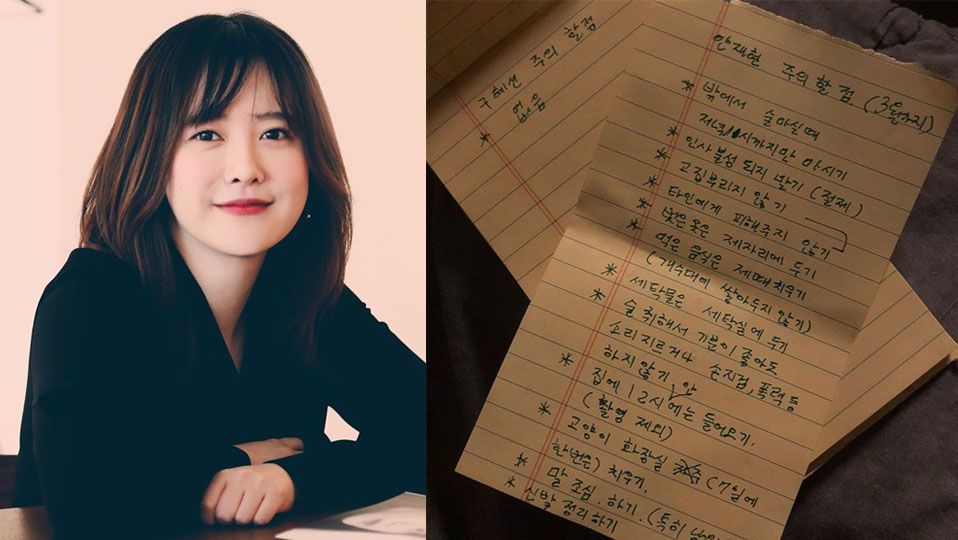 구혜선 주의 할점
* 없음
안재현 주의할 점 (3월까지)
* 밖에서 술마실때
저녁 11시까지만 마시기
* 인사불성 되지 말기 (절제)
* 고집부리지 않기
* 타인에게 피해주지 않기
* 벗은옷은 제자리에 두기
* 먹은 음식은 제때 치우기
(개수대에 쌓아두지않기)
* 세탁물은 세탁실에 두기
* 술 취해서 기분이 좋아도
소리지르거나 손지검, 폭력 등
하지않기
* 집에 12시안에는 들어오기.
(촬영 제외)
* 고양이 화장실 (7일에
한번은) 치우기.
* 말 조심. 하기. (특히
* 신발 정리하기